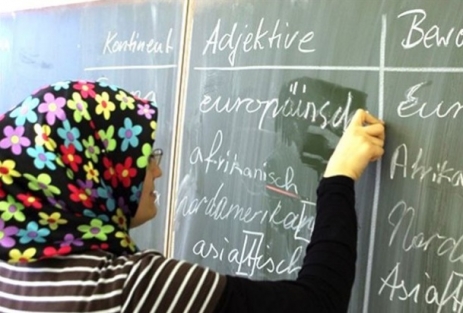 Kontinent Adjektive Bewo
europäinsch Eur
afrikanisch Afrika
nordamerikan Nord
asiatisch Asiat